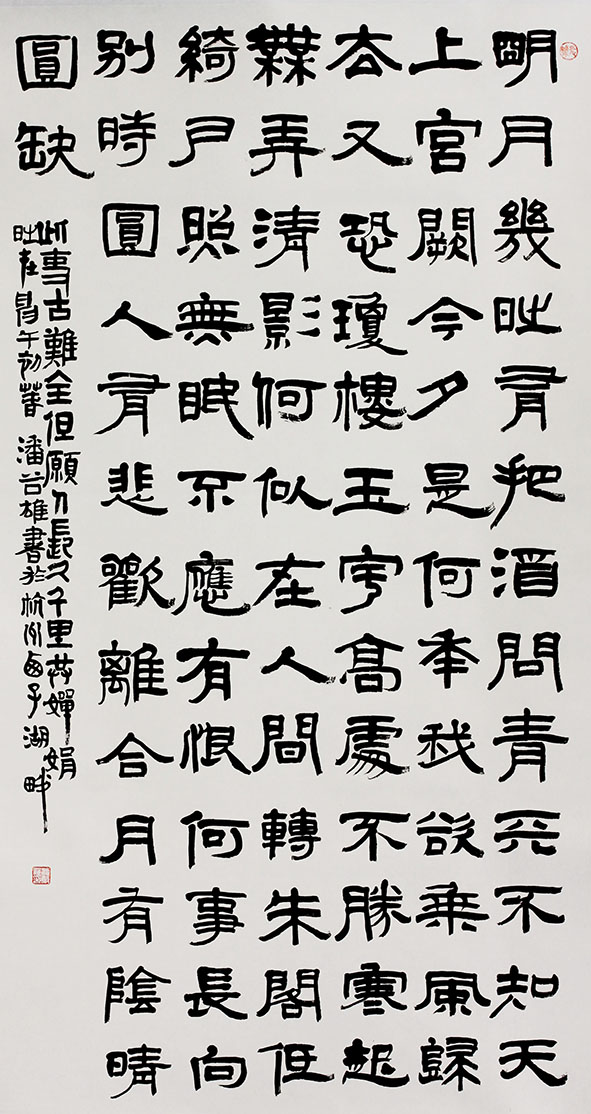 朙月幾旹有把酒問青天不知天
上宮闕今夕是何年我欲乘風歸
去又恐瓊樓玉宇高處不勝寒起
舞弄清影何似在人間轉朱閣低
綺戶照無眠不應有恨何事長向
別時圓人有悲歡離合月有陰晴
圓缺
此事古難全但願人長久千里共嬋娟
旹在午初春 潘雄書於杭州西子湖畔